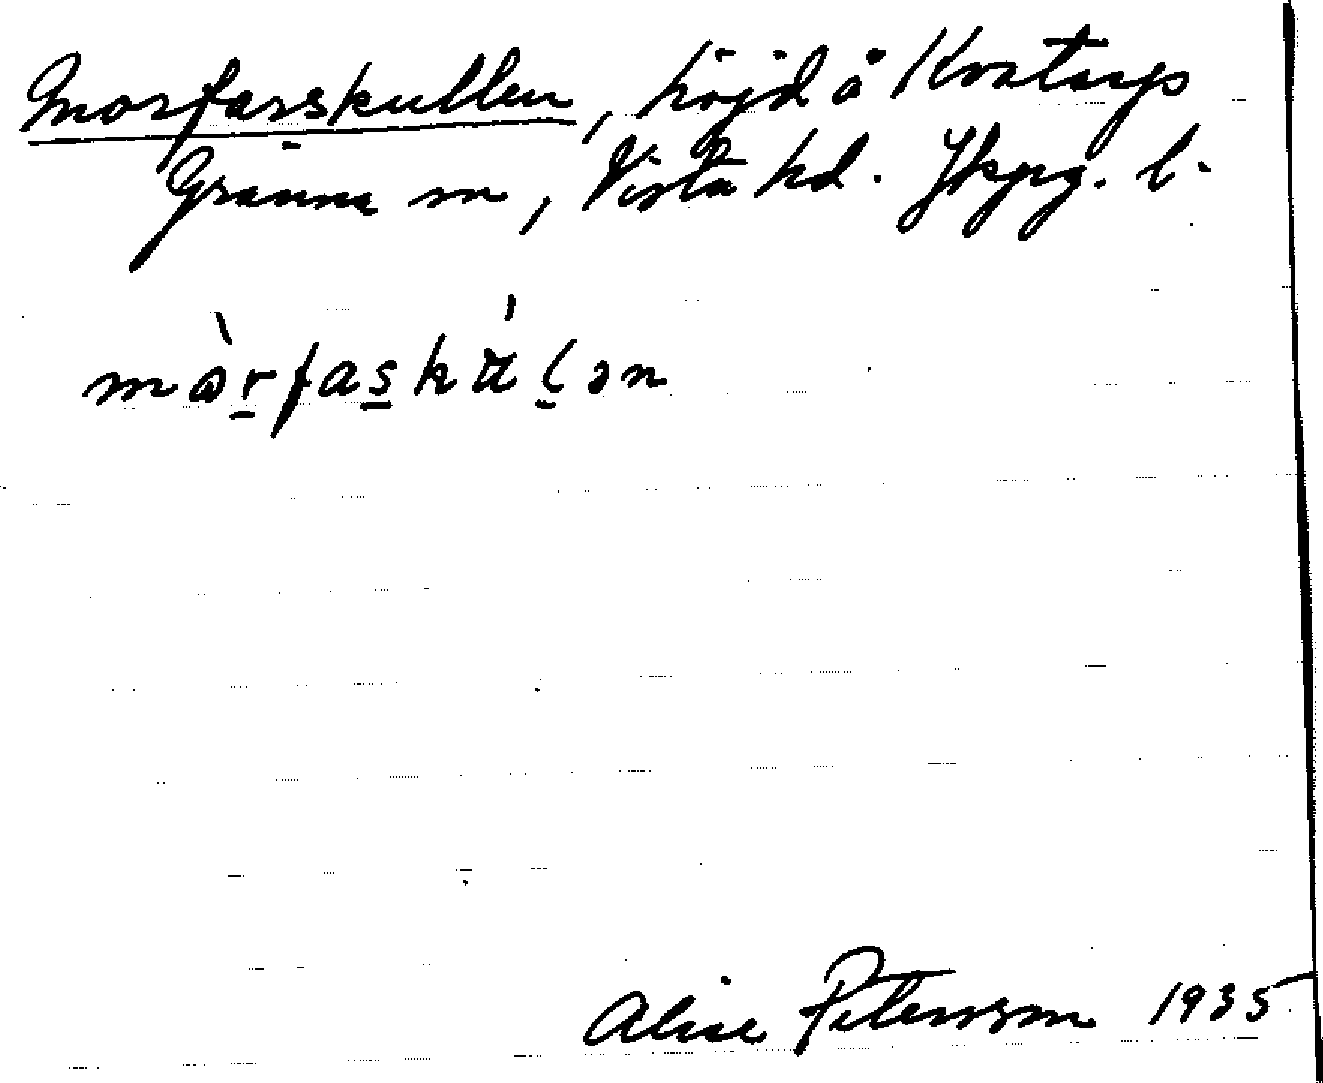 Morfarskullen, höjd å Kvatarps
Gränna sn, Vista hd. Jkpg. l.
mòrfaskúlən
Alice Petersson 1935